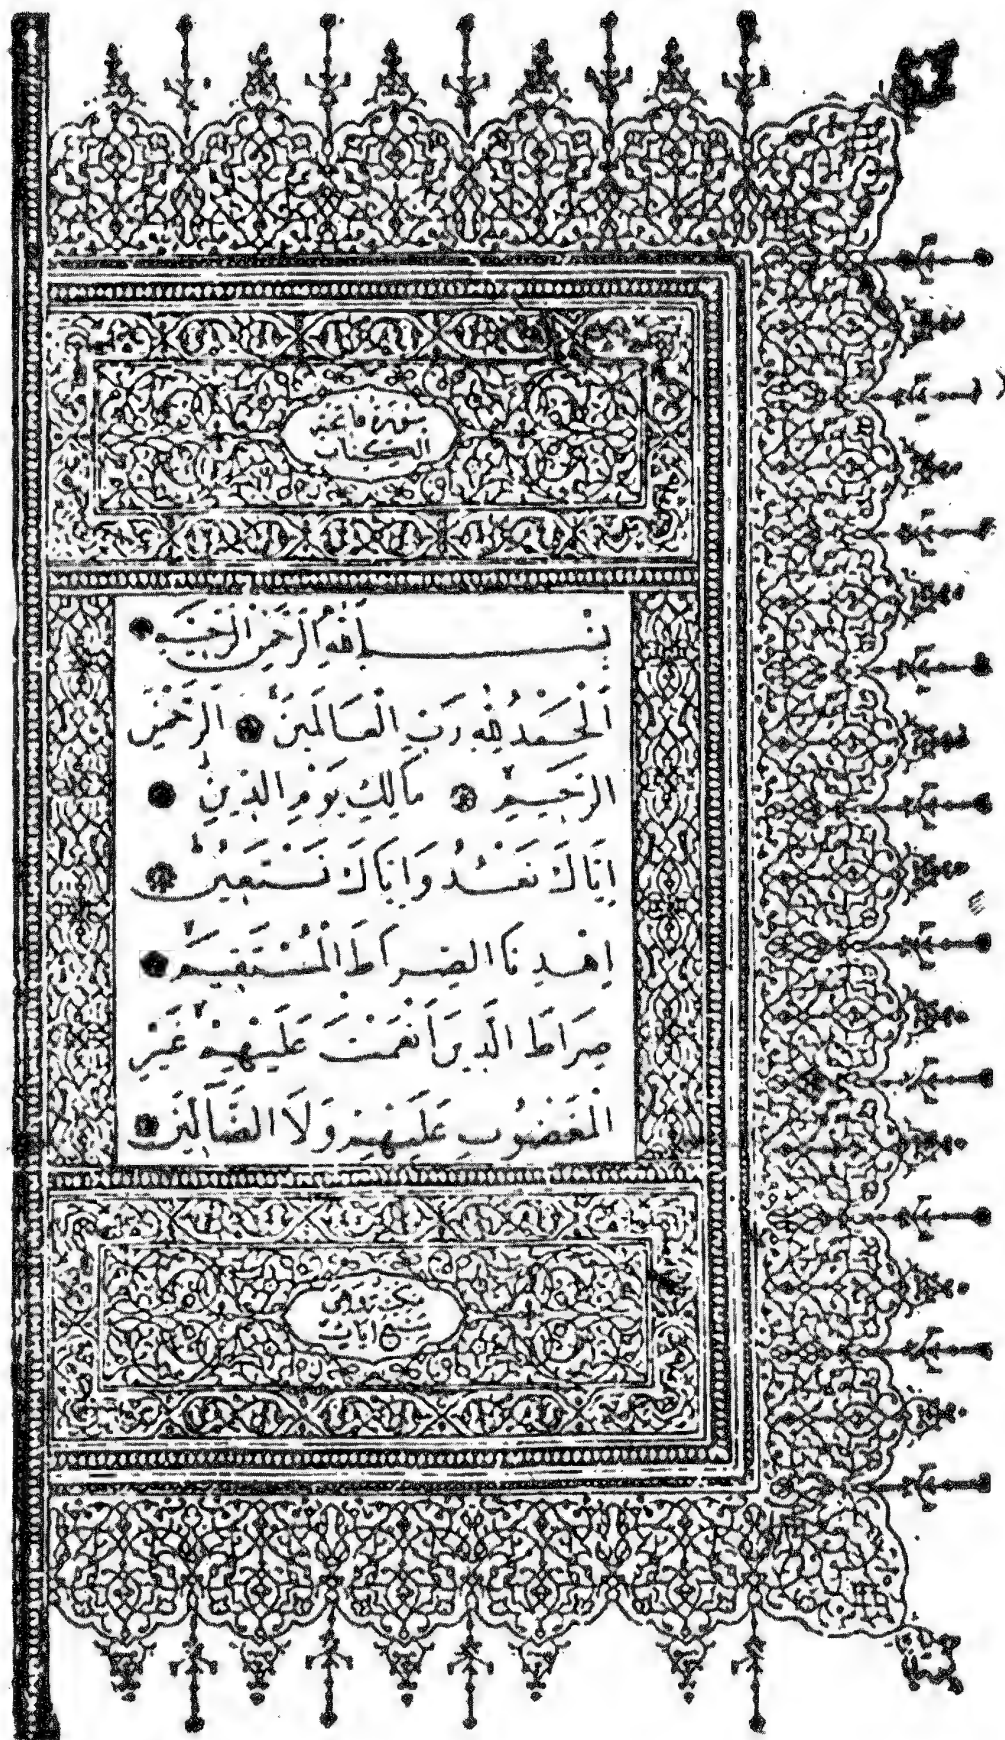 سورة فاتحة
الكتاب
بِسْمِ اللّٰهِ الرَّحْمٰنِ الرَّحِيمِ
اَلْحَمْدُ لِلّٰهِ رَبِّ الْعَالَمِينَ الرَّحْمٰنِ
الرَّحِيمِ مَالِكِ يَوْمِ الدِّينِ
اِيَّاكَ نَعْبُدُ وَاِيَّاكَ نَسْتَعِينُ
اِهْدِنَا الصِّرَاطَ الْمُسْتَقِيمَ
صِرَاطَ الَّذِينَ اَنْعَمْتَ عَلَيْهِمْ غَيْرِ
الْمَغْضُوبِ عَلَيْهِمْ وَلَا الضَّالِّينَ
آيات